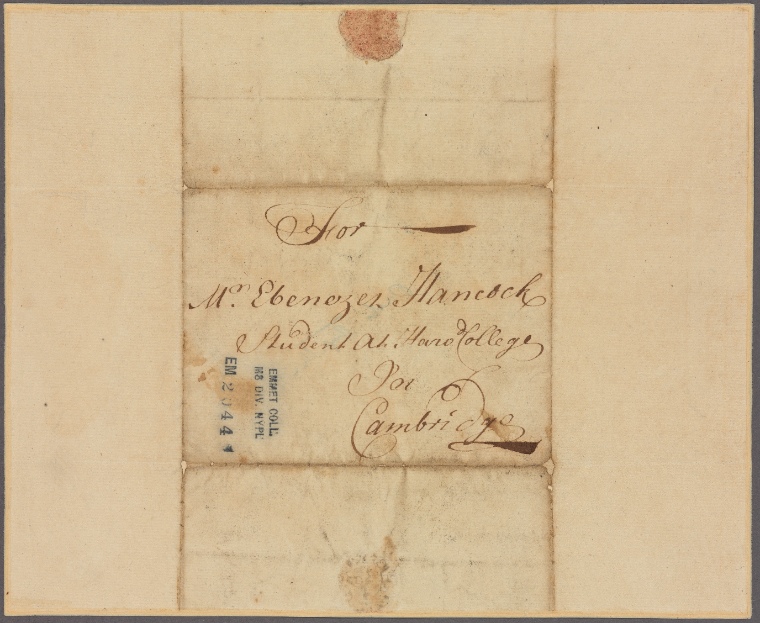 For
Mr. Ebenezer Hancock
Student At Harvd College
In
Cambridge
EMMET COLL.
MS DIV. NYPL
EM